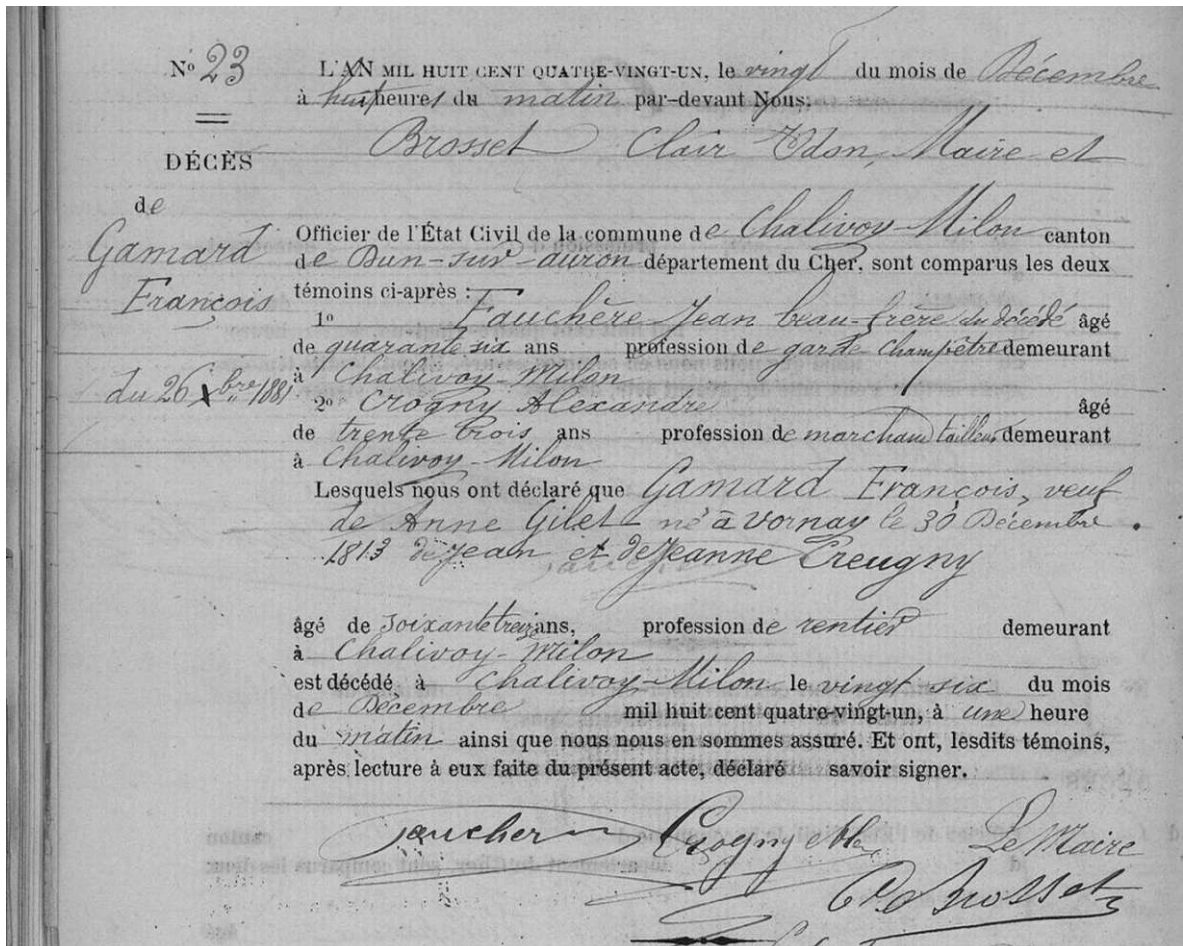 N° 23
L'AN MIL HUIT CENT QUATRE-VINGT-UN, le vingt du mois de Décembre
à huit heures du matin par-devant Nous,
Brosset Clair Odon, Maire et
DÉCÈS
de
Gamard
François
du 26 Xbre 1881
Officier de l'État Civil de la commune de Chalivoy-Milon canton
de Dun-sur-auron département du Cher, sont comparus les deux
témoins ci-après :
1° Fauchère Jean beau-frère du décédé âgé
de quarante six ans profession de garde champêtre demeurant
à Chalivoy-Milon
2° Crogny Alexandre âgé
de trente trois ans profession de marchand tailleur demeurant
à Chalivoy-Milon
Lesquels nous ont déclaré que Gamard François, veuf
de Anne Gilet né à Vornay le 30 Décembre
1813 de Jean et de Jeanne Creugny
âgé de soixante treize ans, profession de rentier demeurant
à Chalivoy-Milon
est décédé à Chalivoy-Milon le vingt six du mois
de Décembre mil huit cent quatre-vingt-un, à une heure
du matin ainsi que nous nous en sommes assuré. Et ont, lesdits témoins,
après lecture à eux faite du présent acte, déclaré savoir signer.
faucher Crogny Le Maire
Brosset